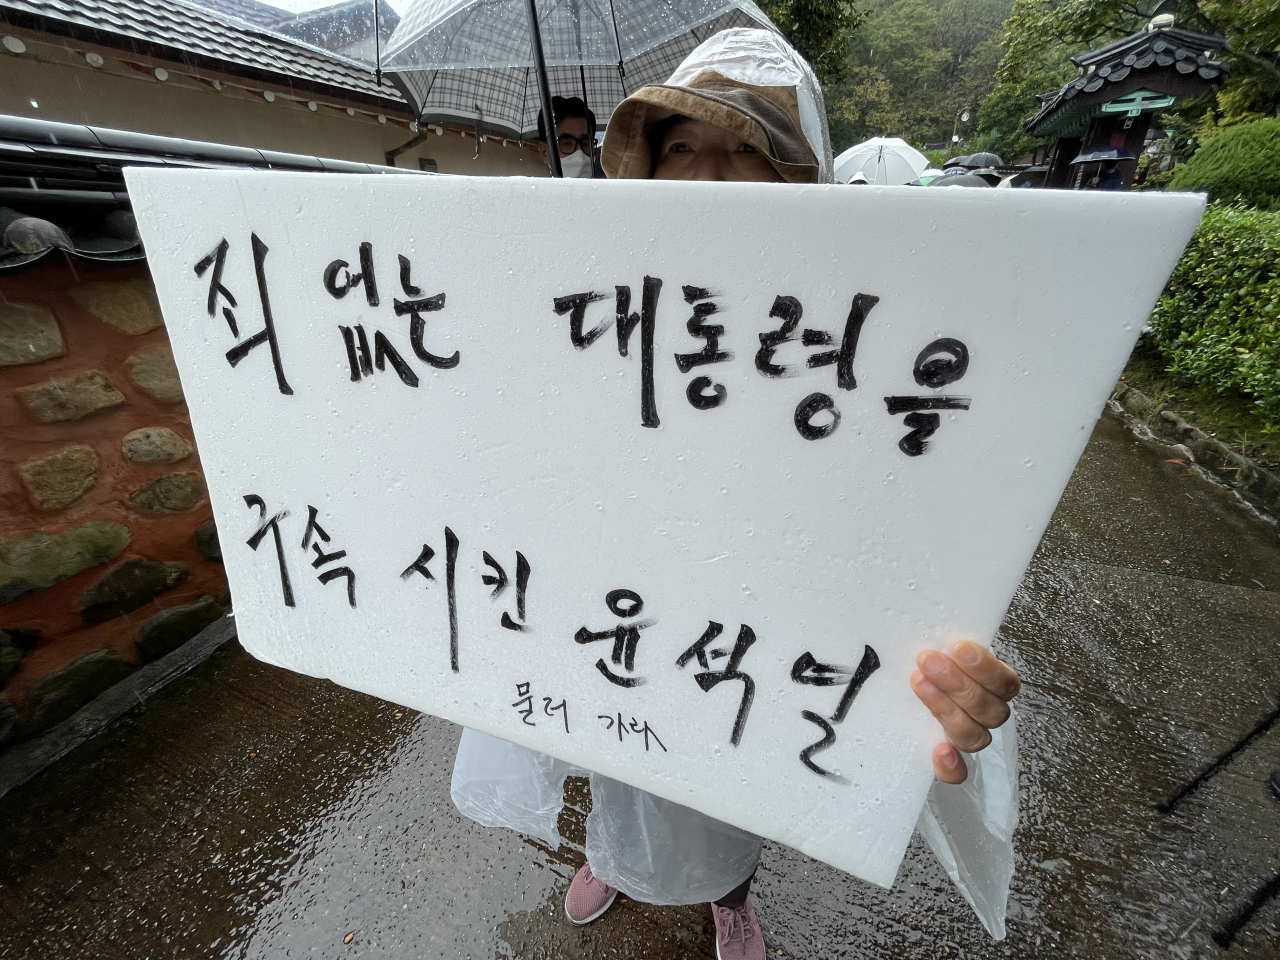 죄 없는 대통령을
구속 시킨 윤석열
물러 가라